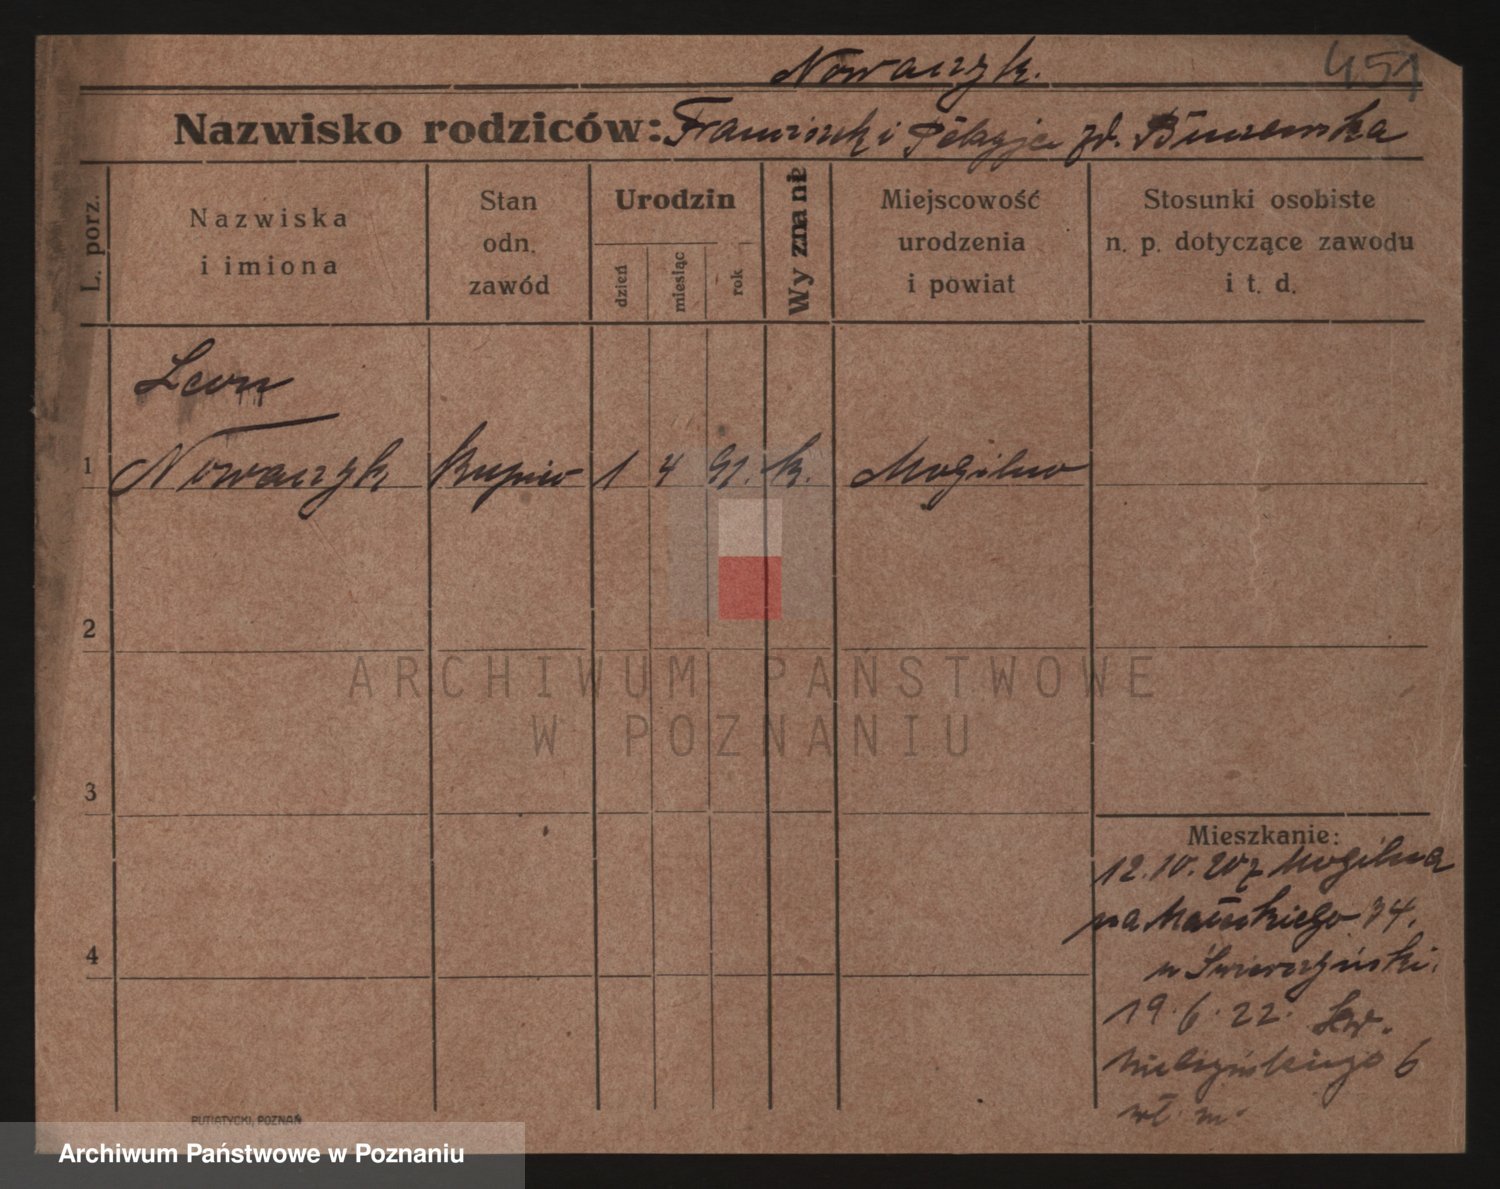 Nowaczyk. 451
Nazwisko rodziców: Franciszek i Pelagja zd.
L. porz.
Nazwiska
i imiona
Stan
odn.
zawód
Urodzin
dzień
miesiąc
rok
Wyznanie
Miejscowość
urodzenia
i powiat
Stosunki osobiste
n. p. dotyczące zawodu
i t. d.
Leon
1 Nowaczyk kupiec 1 4 91. k. Mogilno
2
ARCHIWUM PAŃSTWOWE
W POZNANIU
3
Mieszkanie:
12.10.20 z Mogilna
na 34.
4
u Świerczyński.
19.6.22. Sew.
Mielżyńskiego 6
wł. m.
PUTIATYCKI, POZNAŃ
Archiwum Państwowe w Poznaniu